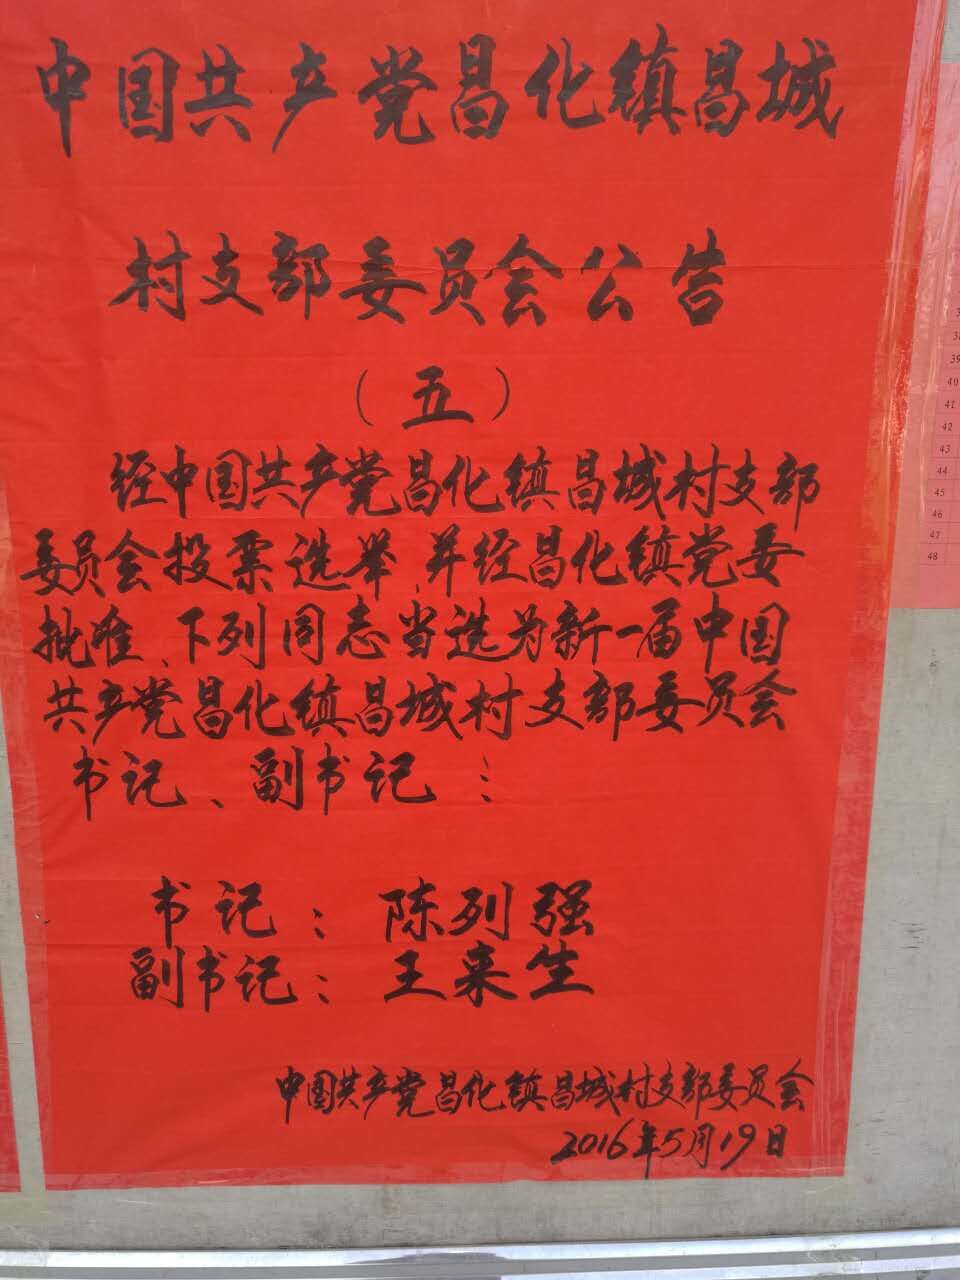 中国共产党昌化镇昌城
村支部委员会公告
（五）
经中国共产党昌化镇昌城村支部
委员会投票选举,并经昌化镇党委
批准、下列同志当选为新一届中国
共产党昌化镇昌城村支部委员会
书记、副书记：
书记：陈列强
副书记：王来生
中国共产党昌化镇昌城村支部委员会
2016年5月19日
39
40
41
42
43
44
45
46
47
48